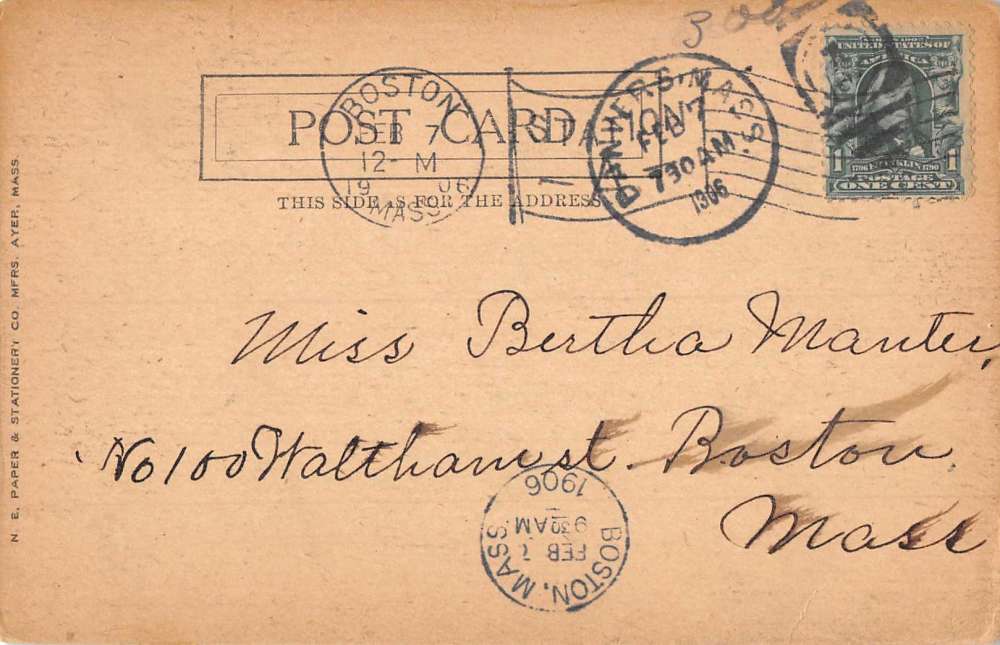 300
BOSTON
FEB 7
12- M
1906
MASS
POST CARD
THIS SIDE IS FOR THE ADDRESS
STA
DANVERS, MASS.
FEB 7
730 AM
1906
UNITED STATES OF
AMERICA
1 FRANKLIN 1
1706 1790
POSTAGE
ONE CENT
Miss Bertha Manter,
No 100 Waltham st. Boston
Mass
BOSTON, MASS
FEB 7
930 AM
1906
N. E. PAPER & STATIONERY CO. MFRS. AYER, MASS.